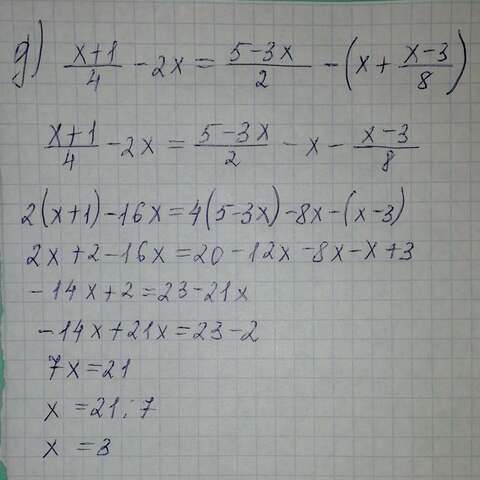 g) (x+1)/4 - 2x = (5-3x)/2 - (x + (x-3)/8)
(x+1)/4 - 2x = (5-3x)/2 - x - (x-3)/8
2(x+1)-16x=4(5-3x)-8x-(x-3)
2x+2-16x=20-12x-8x-x+3
-14x+2=23-21x
-14x+21x=23-2
7x=21
x =21:7
x =3